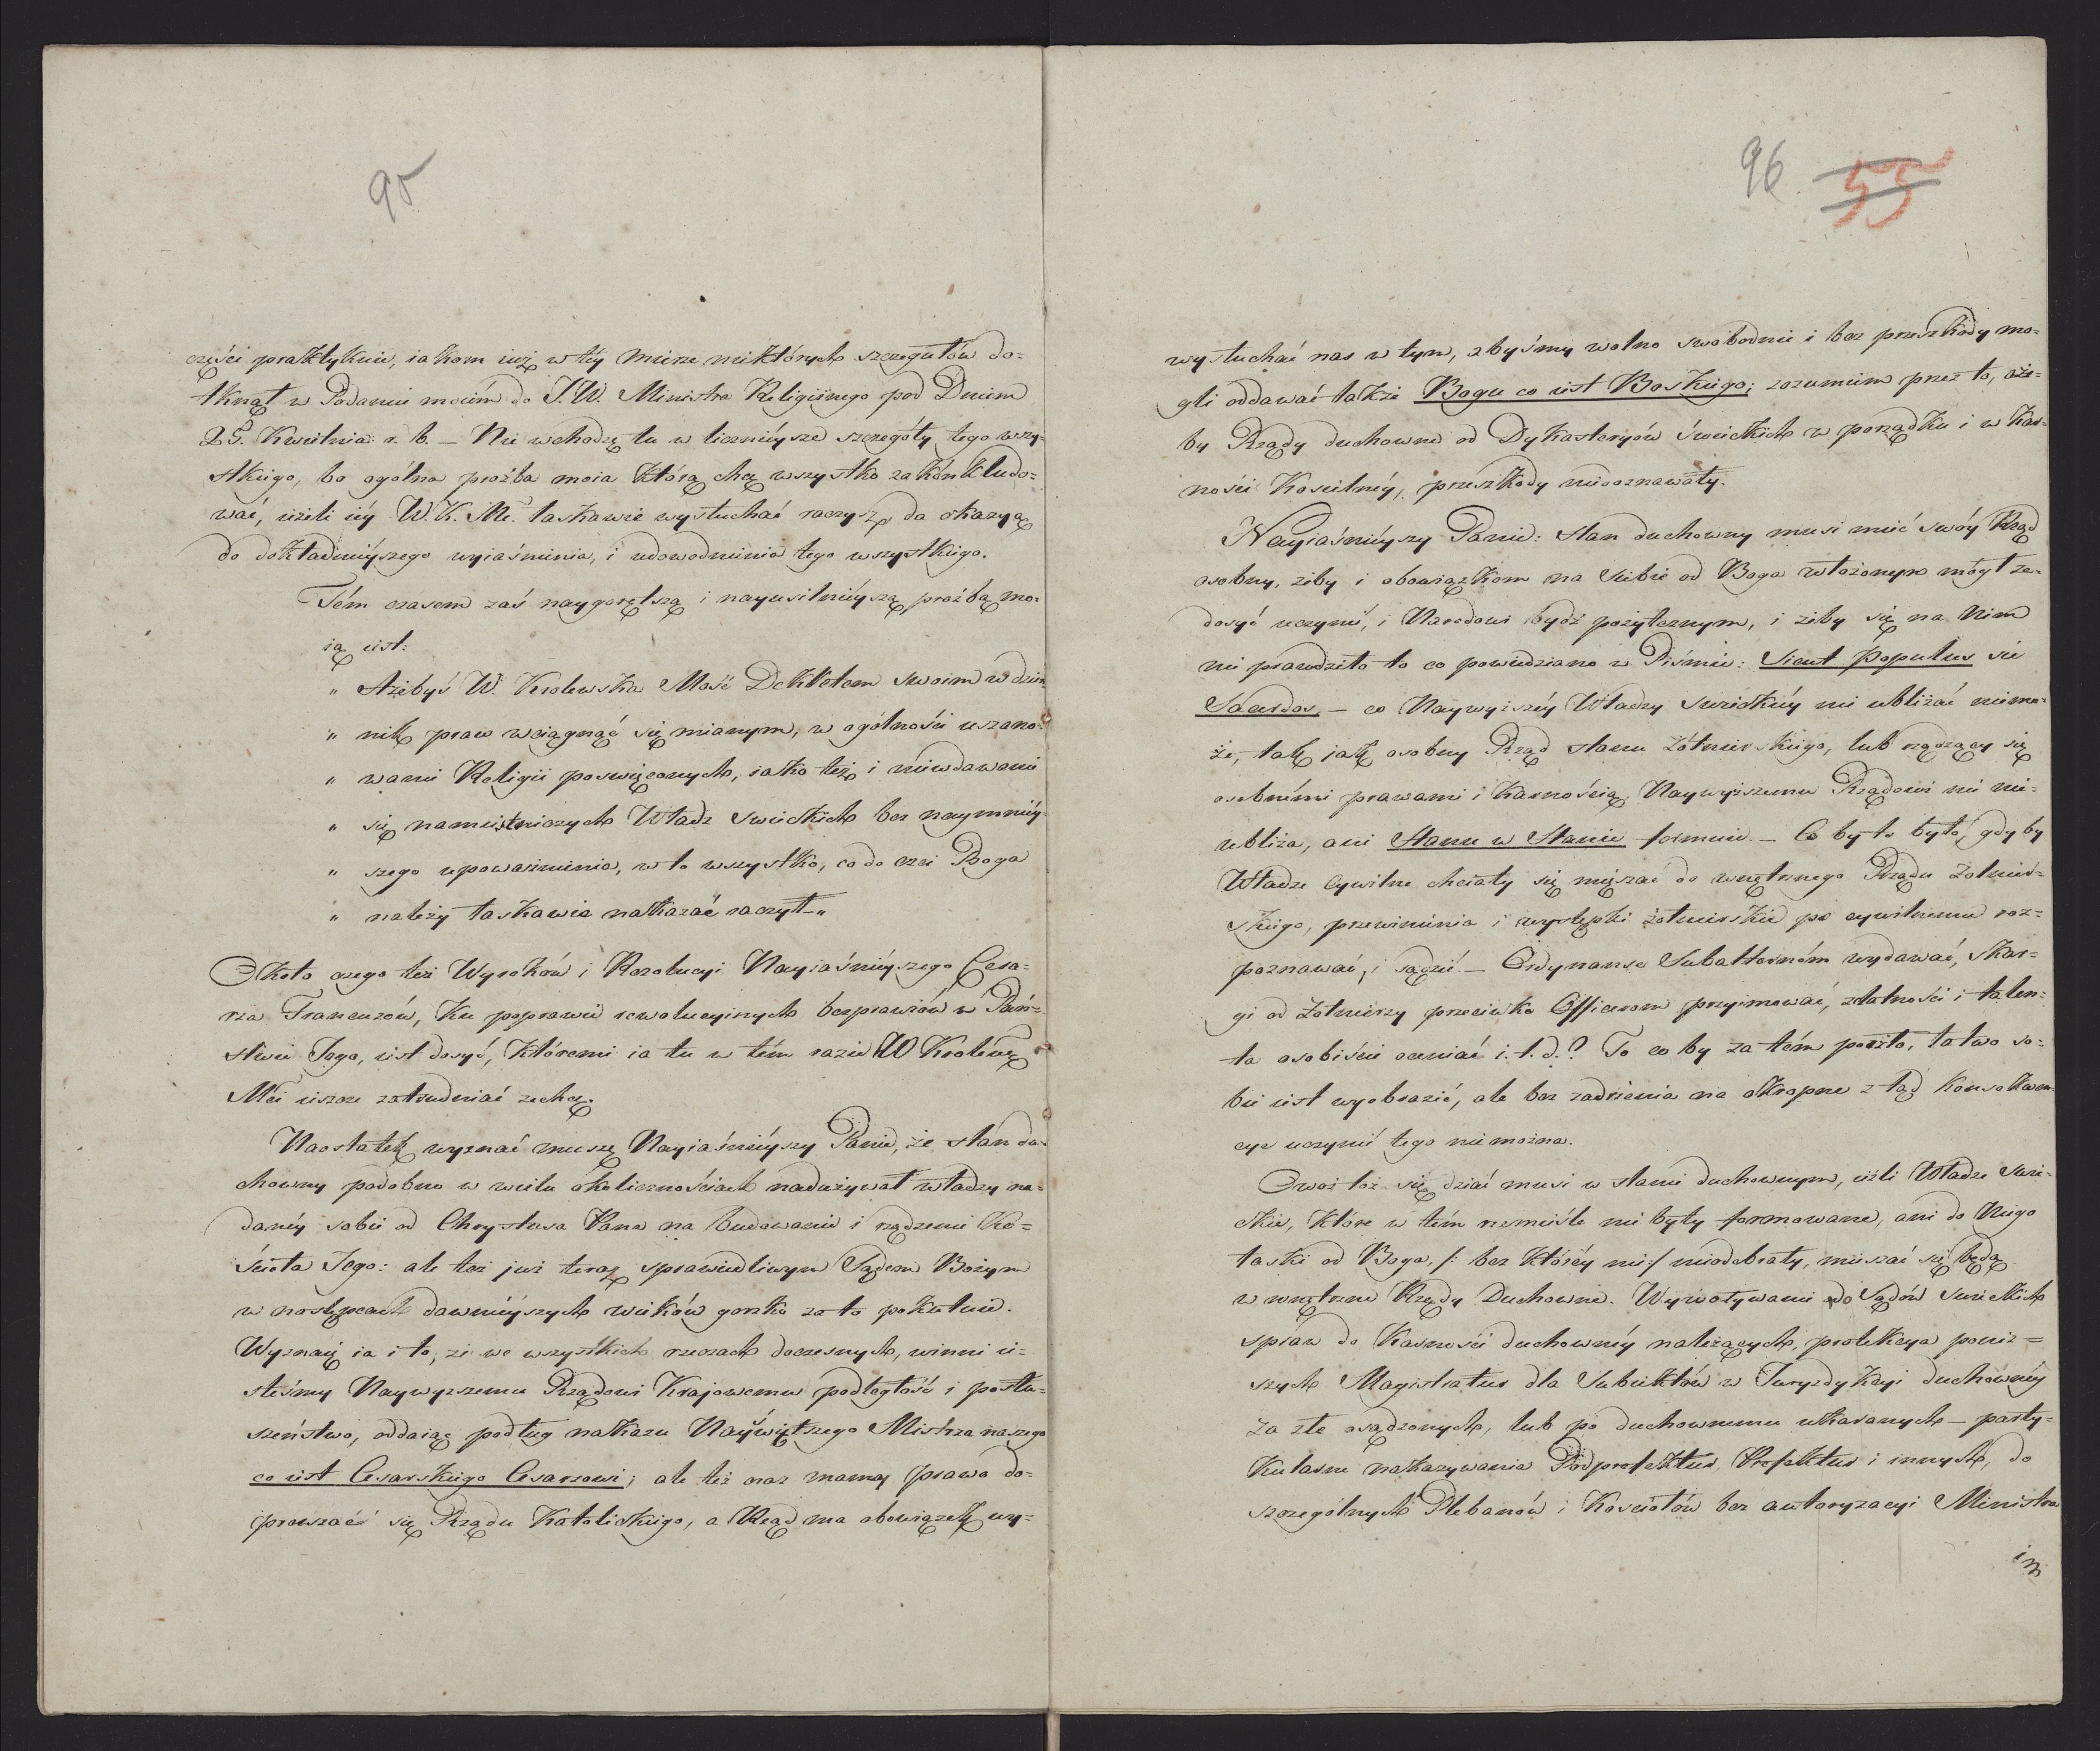 95
części praktykuie, iakom iuż w téy mierze niektórych szczegułów do=
tknął w Podaniu moiém do J.W. Ministra Religijnego pod Dniem
25. Kwietnia r. b. — Nie wchodzę tu w licznieysze szczegóły tego wszy=
stkiego, bo ogólna prożba moia którą chcę wszystko zakónkludo=
wać, ieżeli iéy W. K. Mć. łaskawie wysłuchać raczysz, da okazyą
do dokładnieyszego wyiaśnienia, i udowodnienia tego wszystkiego.
Tém czasem zaś naygorętszą i nayusilnieyszą prożbą mo=
ią iest:
„ Ażebyś W. Królewska Mość Dekretem swoim w dzien=
„ nik praw wciągnąć się mianym, w ogólności uszano=
„ wanie Religii poswięconych, iako też i niewdawanie
„ się namiestniczych Władz Swieckich bez naymniéy=
„ szego upoważnienia, w to wszystko, co do czci Boga
„ należy łaskawie nakazać raczył —„
Około czego też Wyroków i Rezolucyi Nayiaśnieyszego Cesa=
rza Francuzów, ku poprawie rewolucyinych bezprawiów w Pań=
stwie Jego, iest dosyć, któremi ia tu w tém razie W Królewsk
Mći ieszcze zatrudniać zechcę.
Naostatek wyznać muszę Nayiaśnieyszy Panie, że stan du=
chowny podobno w wielu okolicznościach nadużywał władzy na=
danéy sobie od Chrystusa Pana na budowanie i rządzenie Ko=
ścioła Jego: ale też już teraz sprawiedliwym Sądem Bożym
w następcach dawniéyszych wieków gorzko za to pokutuie.
Wyznaię ia i to, że we wszystkich rzeczach doczesnych, winni ie=
steśmy Naywyższemu Rządowi Krajowemu podległość i posłu=
szeństwo, oddaiąc podług nakazu Nayświętszego Mistrza naszego
co iest Cesarskiego Cesarzowi; ale też oraz mamy prawo do=
praszać się Rządu Katolickiego, a Rząd ma obowiązek wy=
96 55
wysłuchać nas w tym, abyśmy wolno swobodnie i bez przeszkody mo=
gli oddawać także Bogu co iest Boskiego; rozumiem przez to, aże=
by Rządy duchowne od Dykasteryów świeckich w porządku i w kar=
ności Kościelnéy, przeszkody niedoznawały.
Nayiaśnieyszy Panie: stan duchowny musi mieć swóy Rząd
osobny, żeby i obowiązkom na siebie od Boga włożonym mógł za=
dosyć uczynić, i Narodowi bydź pożytecznym, i żeby się na Nim
nie prawdziło to co powiedziano w Piśmie: Sicut Populus sic
Sacerdos, — co Naywyższéy Władzy Swieckiéy nie ubliżać niemo=
że, tak jak osobny Rząd stanu żołnierskiego, lub rządzący się
osobnémi prawami i karnością, Naywyższemu Rządowi nie nie=
ubliża, ani Stanu w Stanie formuie. — Co by to było, gdyby
Władze Cywilne chciały się mięszać do wnętrznego Rządu żołnier=
skiego, przewinienia i występki żołnierskie po cywilnemu roz=
poznawać, i sądzić. — Ordynanse Subalternóm wydawać, skar=
gi od żołnierzy przeciwko Officerom przyimować, zdatności i talen=
ta osobiście oceniać i. t. d.? To co by za tém poszło, łatwo so=
bie iest wyobrazić, ale bez zadrżenia na okropne ztąd konsekwen=
cye uczynić tego nie można.
Owoż toż się dziać musi w stanie duchownym, ieżli Władze Swie=
ckie, które w tém rzemieśle nie były formowane, ani do Niego
łaski od Boga, /: bez któréy nic :/ nieodebrały, mieszać się będą
w wnętrzne Rządy Duchowne. Wywoływanie do Sądów Swieckich
spraw do Karności duchownéy należących, protekcya poniż=
szych Magistratur dla Subiektów w Juryzdykcyi duchownéy
za złe osądzonych, lub po duchownemu ukaranych — party=
kularne nakazywania Podprefektur, Prefektur i innych, do
szczególnych Plebanów i Kosciołów bez autoryzacyi Ministra
i z